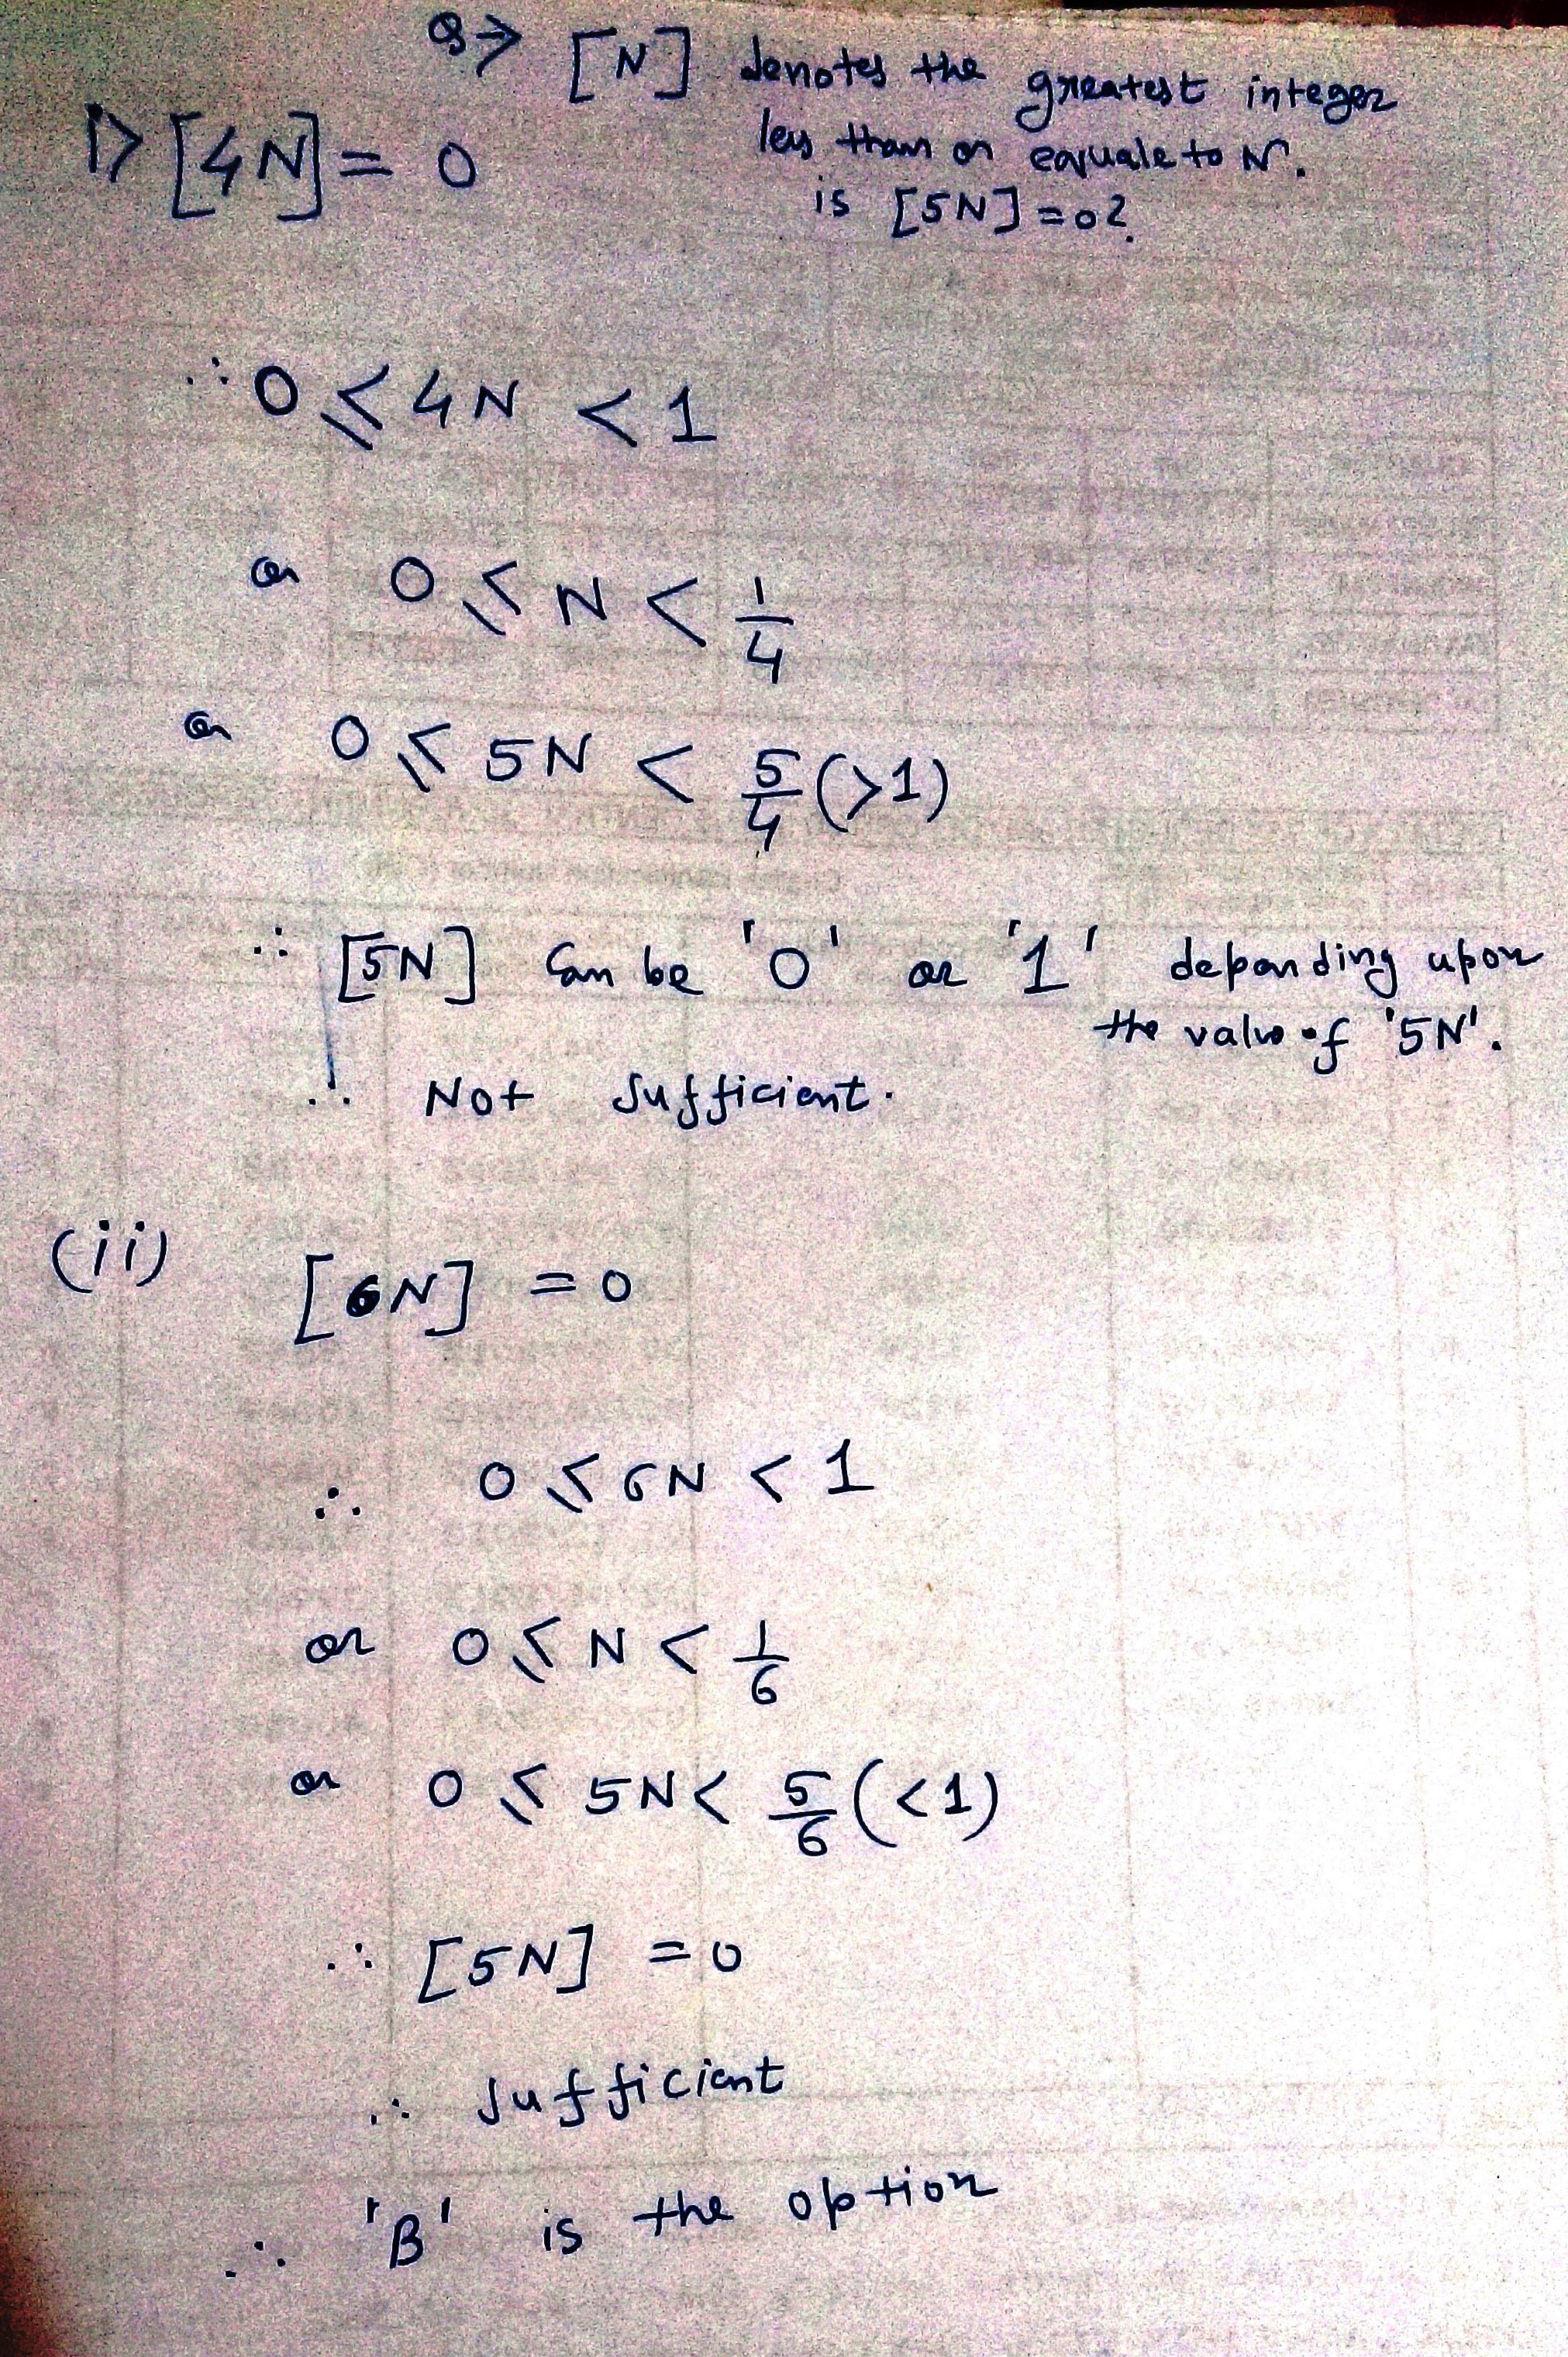 Q→ [N] denotes the greatest integer
less than or equale to N.
is [5N] = 0?
1> [4N] = 0
∴ 0 ⩽ 4N < 1
or 0 ⩽ N < 1/4
or 0 ⩽ 5N < 5/4 (>1)
∴ [5N] Can be '0' or '1' depending upon
the value of '5N'.
∴ Not Sufficient.
(ii) [6N] = 0
∴ 0 ⩽ 6N < 1
or 0 ⩽ N < 1/6
or 0 ⩽ 5N < 5/6 (<1)
∴ [5N] = 0
∴ Sufficient
∴ 'B' is the option